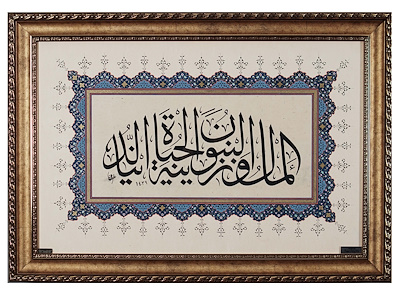 المال والبنون زينة الحياة الدنيا